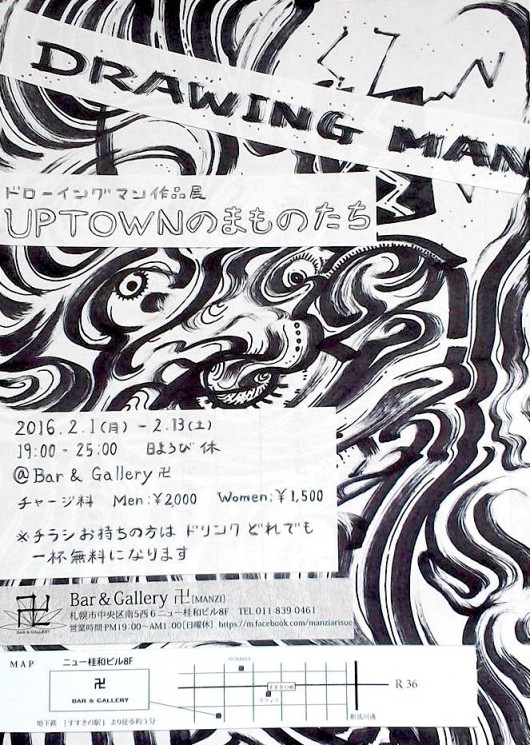 DRAWING MAN
ドローイングマン作品展
UPTOWNのまものたち
2016.2.1(月) - 2.13(土)
19:00 - 25:00 日ようび 休
@Bar & Gallery 卍
チャージ料 Men:¥2,000 Women:¥1,500
※チラシお持ちの方は ドリンク どれでも
一杯無料になります
卍
BAR & GALLERY
Bar & Gallery 卍 [MANZI]
札幌市中央区南5西6 ニュー桂和ビル8F TEL 011 839 0461
営業時間 PM19:00〜AM1:00 [日曜休] https://m.facebook.com/manziarissue
MAP
ニュー桂和ビル8F
卍
BAR & GALLERY
すすきの駅
R 36
創成川通
地下鉄 [すすきの駅] より徒歩約3分